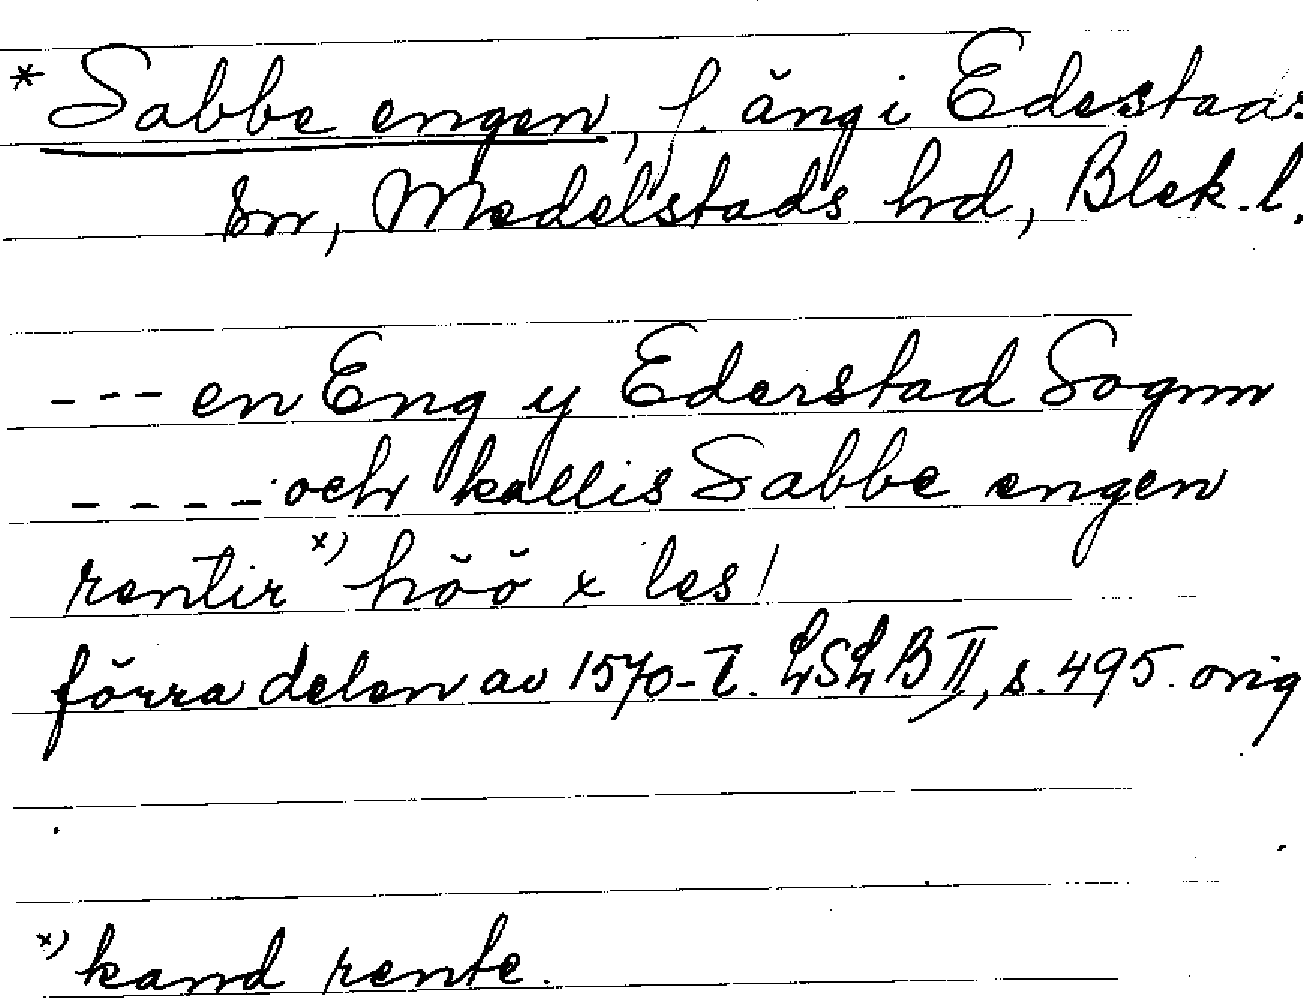 * Sabbe engen, f. äng i Edestads
sn, Medelstads hd, Blek. l.
--- en Eng y Ederstad Sognn
---- och kallis Sabbe engen
rentir x) höö x les!
förra delen av 1570-t. LSLB II, s. 495. orig
x) kand rente.